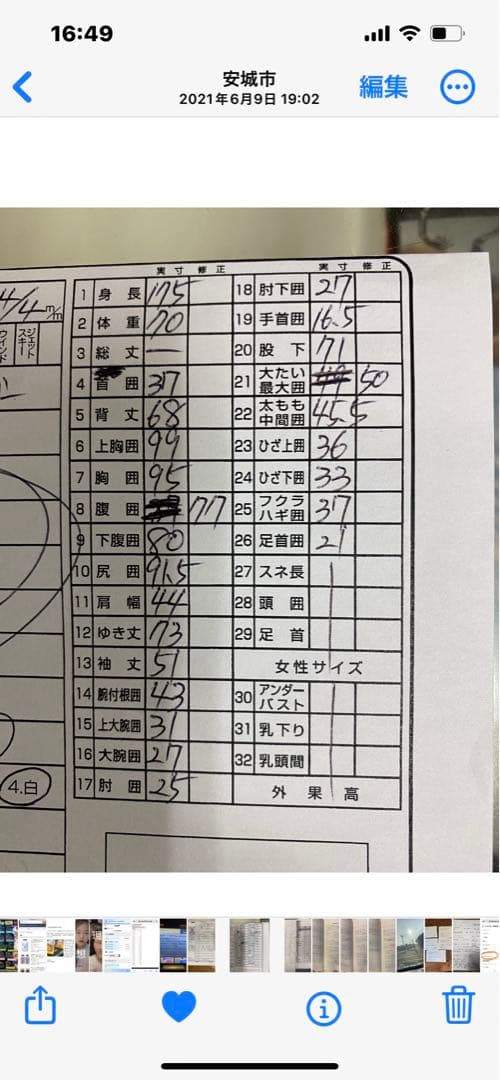 16:49
安城市
2021年6月9日 19:02
編集
実寸 修正 実寸 修正
4/4 m/m
ジェットスキー
1 身長 175
2 体重 70
3 総丈 —
4 首囲 37
5 背丈 68
6 上胸囲 99
7 胸囲 95
8 腹囲 77
9 下腹囲 80
10 尻囲 91.5
11 肩幅 44
12 ゆき丈 73
13 袖丈 51
14 腕付根囲 43
15 上大腕囲 31
16 大腕囲 27
17 肘囲 25
4.白
18 肘下囲 27
19 手首囲 16.5
20 股下 71
21 大たい最大囲 50
22 太もも中間囲 45.5
23 ひざ上囲 36
24 ひざ下囲 33
25 フクラハギ囲 37
26 足首囲 21
27 スネ長
28 頭囲
29 足首
女性サイズ
30 アンダーバスト
31 乳下り
32 乳頭間
外果高